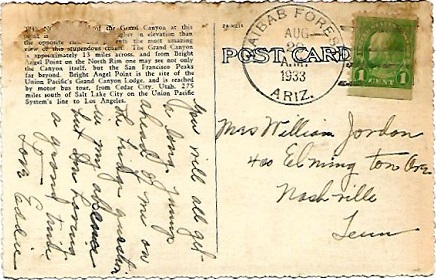 of the Grand Canyon at this
higher in elevation than
the opposite with the most amazing
view of this stupendous chasm. The Grand Canyon
is approximately 13 miles across, and from Bright
Angel Point on the North Rim one may see not only
the Canyon itself, but the San Francisco Peaks
far beyond. Bright Angel Point is the site of the
Union Pacific's Grand Canyon Lodge, and is reached
by motor bus tour, from Cedar City, Utah, 275
miles south of Salt Lake City on the Union Pacific
System's line to Los Angeles.
You will all get
a long jump
ahead of me on
the
in my absence
but I'm having
a grand time
Love Eddie
POST CARD
KAIBAB FOREST
AUG
1933
ARIZ.
1 1
Mrs William Jordon
400 Elmington Ave
Nashville
Tenn